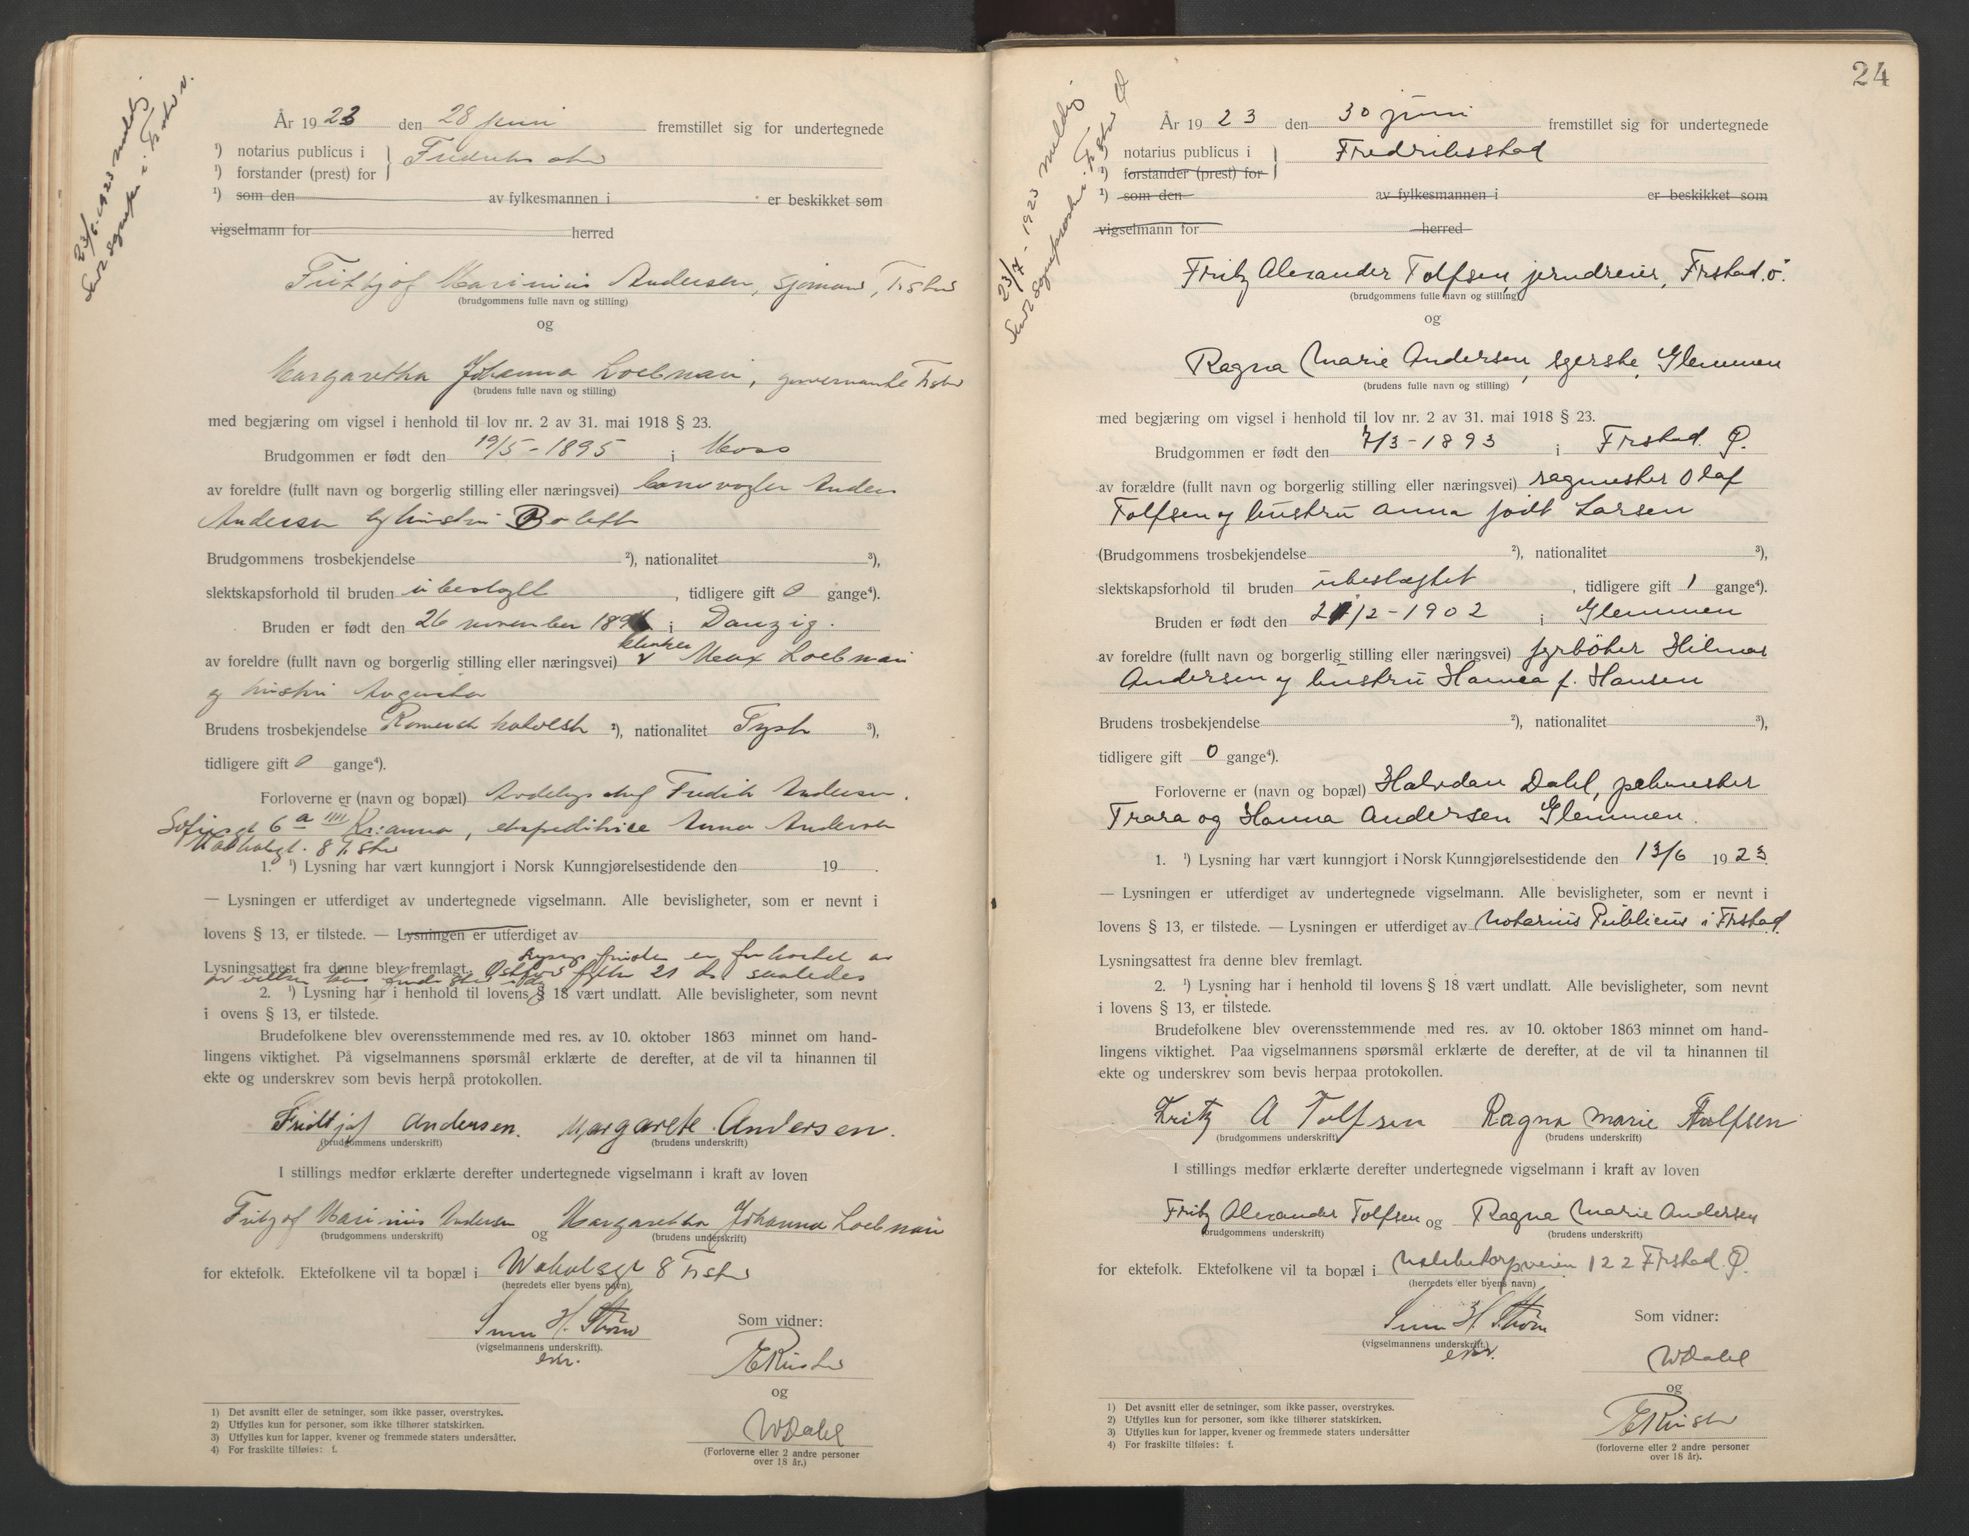 År 1923 den 28 juni fremstillet sig for undertegnede
¹) notarius publicus i
¹) forstander (prest) for
¹) som den av fylkesmannen i er beskikket som
vigselmann for herred
Andersen, sjømann,
(brudgommens fulle navn og stilling)
og
Margaretha Johanna Loebnau, guvernante
(brudens fulle navn og stilling)
med begjæring om vigsel i henhold til lov nr. 2 av 31. mai 1918 § 23.
Brudgommen er født den 19/5 - 1895 i Moss
av foreldre (fullt navn og borgerlig stilling eller næringsvei) Anders
Andersen og hustru
Brudgommens trosbekjendelse ²), nationalitet ³),
slektskapsforhold til bruden ubeslegtet, tidligere gift 0 gange⁴).
Bruden er født den 26 november i Danzig.
av foreldre (fullt navn og borgerlig stilling eller næringsvei) Max Loebnau
og hustru Augusta
Brudens trosbekjendelse Romersk katolsk ²), nationalitet Tysk ³),
tidligere gift 0 gange⁴).
Forloverne er (navn og bopæl) Fredrik Andersen,
6 a IIII Kr:ania, Anna Andersen
8
1. ¹) Lysning har vært kunngjort i Norsk Kunngjørelsestidende den 19 .
— Lysningen er utferdiget av undertegnede vigselmann. Alle bevisligheter, som er nevnt i
lovens § 13, er tilstede. — Lysningen er utferdiget av
Lysningsattest fra denne blev fremlagt.
2. ¹) Lysning har i henhold til lovens § 18 vært undlatt. Alle bevisligheter, som nevnt
i ovens § 13, er tilstede.
Brudefolkene blev overensstemmende med res. av 10. oktober 1863 minnet om hand-
lingens viktighet. På vigselmannens spørsmål erklærte de derefter, at de vil ta hinannen til
ekte og underskrev som bevis herpå protokollen.
Fridtjof Andersen. Margarete Andersen.
(brudgommens underskrift) (brudens underskrift)
I stillings medfør erklærte derefter undertegnede vigselmann i kraft av loven
Andersen og Margaretha Johanna Loebnau
(brudgommens underskrift) (brudens underskrift)
for ektefolk. Ektefolkene vil ta bopæl i 8
(herredets eller byens navn)
Som vidner:
(vigselmannens underskrift).
og
WDahl
(Forloverne eller 2 andre personer
over 18 år.)
1) Det avsnitt eller de setninger, som ikke passer, overstrykes.
2) Utfylles kun for personer, som ikke tilhører statskirken.
3) Utfylles kun for lapper, kvener og fremmede staters undersåtter.
4) For fraskilte tilføies: f.
24
År 1923 den 30 juni fremstillet sig for undertegnede
¹) notarius publicus i Fredriksstad
¹) forstander (prest) for
¹) som den av fylkesmannen i er beskikket som
vigselmann for herred
Fritz Alexander Tolfsen, jerndreier, Frstad. ø.
(brudgommens fulle navn og stilling)
og
Ragna Marie Andersen, syerske, Glemmen
(brudens fulle navn og stilling)
med begjæring om vigsel i henhold til lov nr. 2 av 31. mai 1918 § 23.
Brudgommen er født den 7/3 - 1893 i Frstad. Ø.
av forældre (fullt navn og borgerlig stilling eller næringsvei) sagmester Olaf
Tolfsen og hustru Anna født Larsen
(Brudgommens trosbekjendelse ²), nationalitet ³),
slektskapsforhold til bruden ubeslægtet, tidligere gift 1 gange⁴).
Bruden er født den 12 - 1902 i Glemmen
av foreldre (fullt navn og borgerlig stilling eller næringsvei) fyrbøter Hilmar
Andersen og hustru Hanna f. Hansen
Brudens trosbekjendelse ²), nationalitet ³),
tidligere gift 0 gange⁴).
Forloverne er (navn og bopæl) Halvdan Dahl,
Trara og Hanna Andersen Glemmen.
1. ¹) Lysning har vært kunngjort i Norsk Kunngjørelsestidende den 13/6 1923
— Lysningen er utferdiget av undertegnede vigselmann. Alle bevisligheter, som er nevnt i
lovens § 13, er tilstede. — Lysningen er utferdiget av Notarius Publicus i Frstad.
Lysningsattest fra denne blev fremlagt.
2. ¹) Lysning har i henhold til lovens § 18 vært undlatt. Alle bevisligheter, som nevnt
i lovens § 13, er tilstede.
Brudefolkene blev overensstemmende med res. av 10. oktober 1863 minnet om hand-
lingens viktighet. Paa vigselmannens spørsmål erklærte de derefter, at de vil ta hinannen til
ekte og underskrev som bevis herpaa protokollen.
Fritz A Tolfsen Ragna Marie Tolfsen
(brudgommens underskrift) (brudens underskrift)
I stillings medfør erklærte derefter undertegnede vigselmann i kraft av loven
Fritz Alexander Tolfsen og Ragna Marie Andersen
(brudgommens underskrift) (brudens underskrift)
for ektefolk. Ektefolkene vil ta bopæl i 122 Frstad. Ø.
(herredets eller byens navn)
Som vidner:
(vigselmannens underskrift)
WDahl
og
(forloverne eller 2 andre personer
over 18 år).
1) Det avsnitt eller de setninger, som ikke passer, overstrykes.
2) Utfylles kun for personer, som ikke tilhører statskirken.
3) Utfylles kun for lapper, kvener og fremmede staters undersåtter
4) For fraskilte tilføies: f.